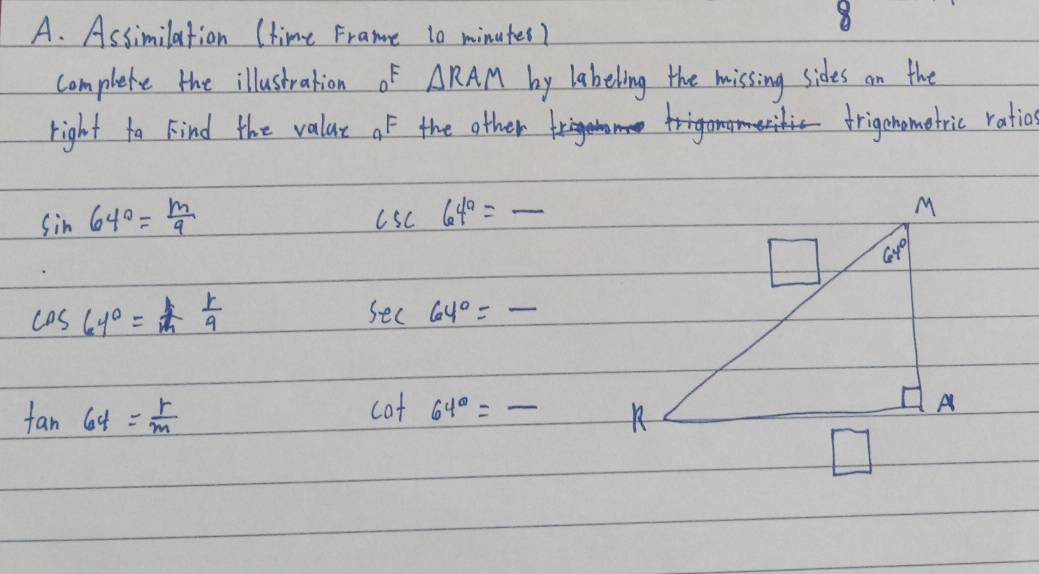 8
A. Assimilation (time Frame 10 minutes)
Complete the illustration oF ΔRAM by labeling the missing sides on the
right to Find the value oF the other trigonometric ratios
sin 64° = m/a csc 64° = —
M
64°
cos 64° = r/a sec 64° = —
tan 64 = r/m cot 64° = —
R A